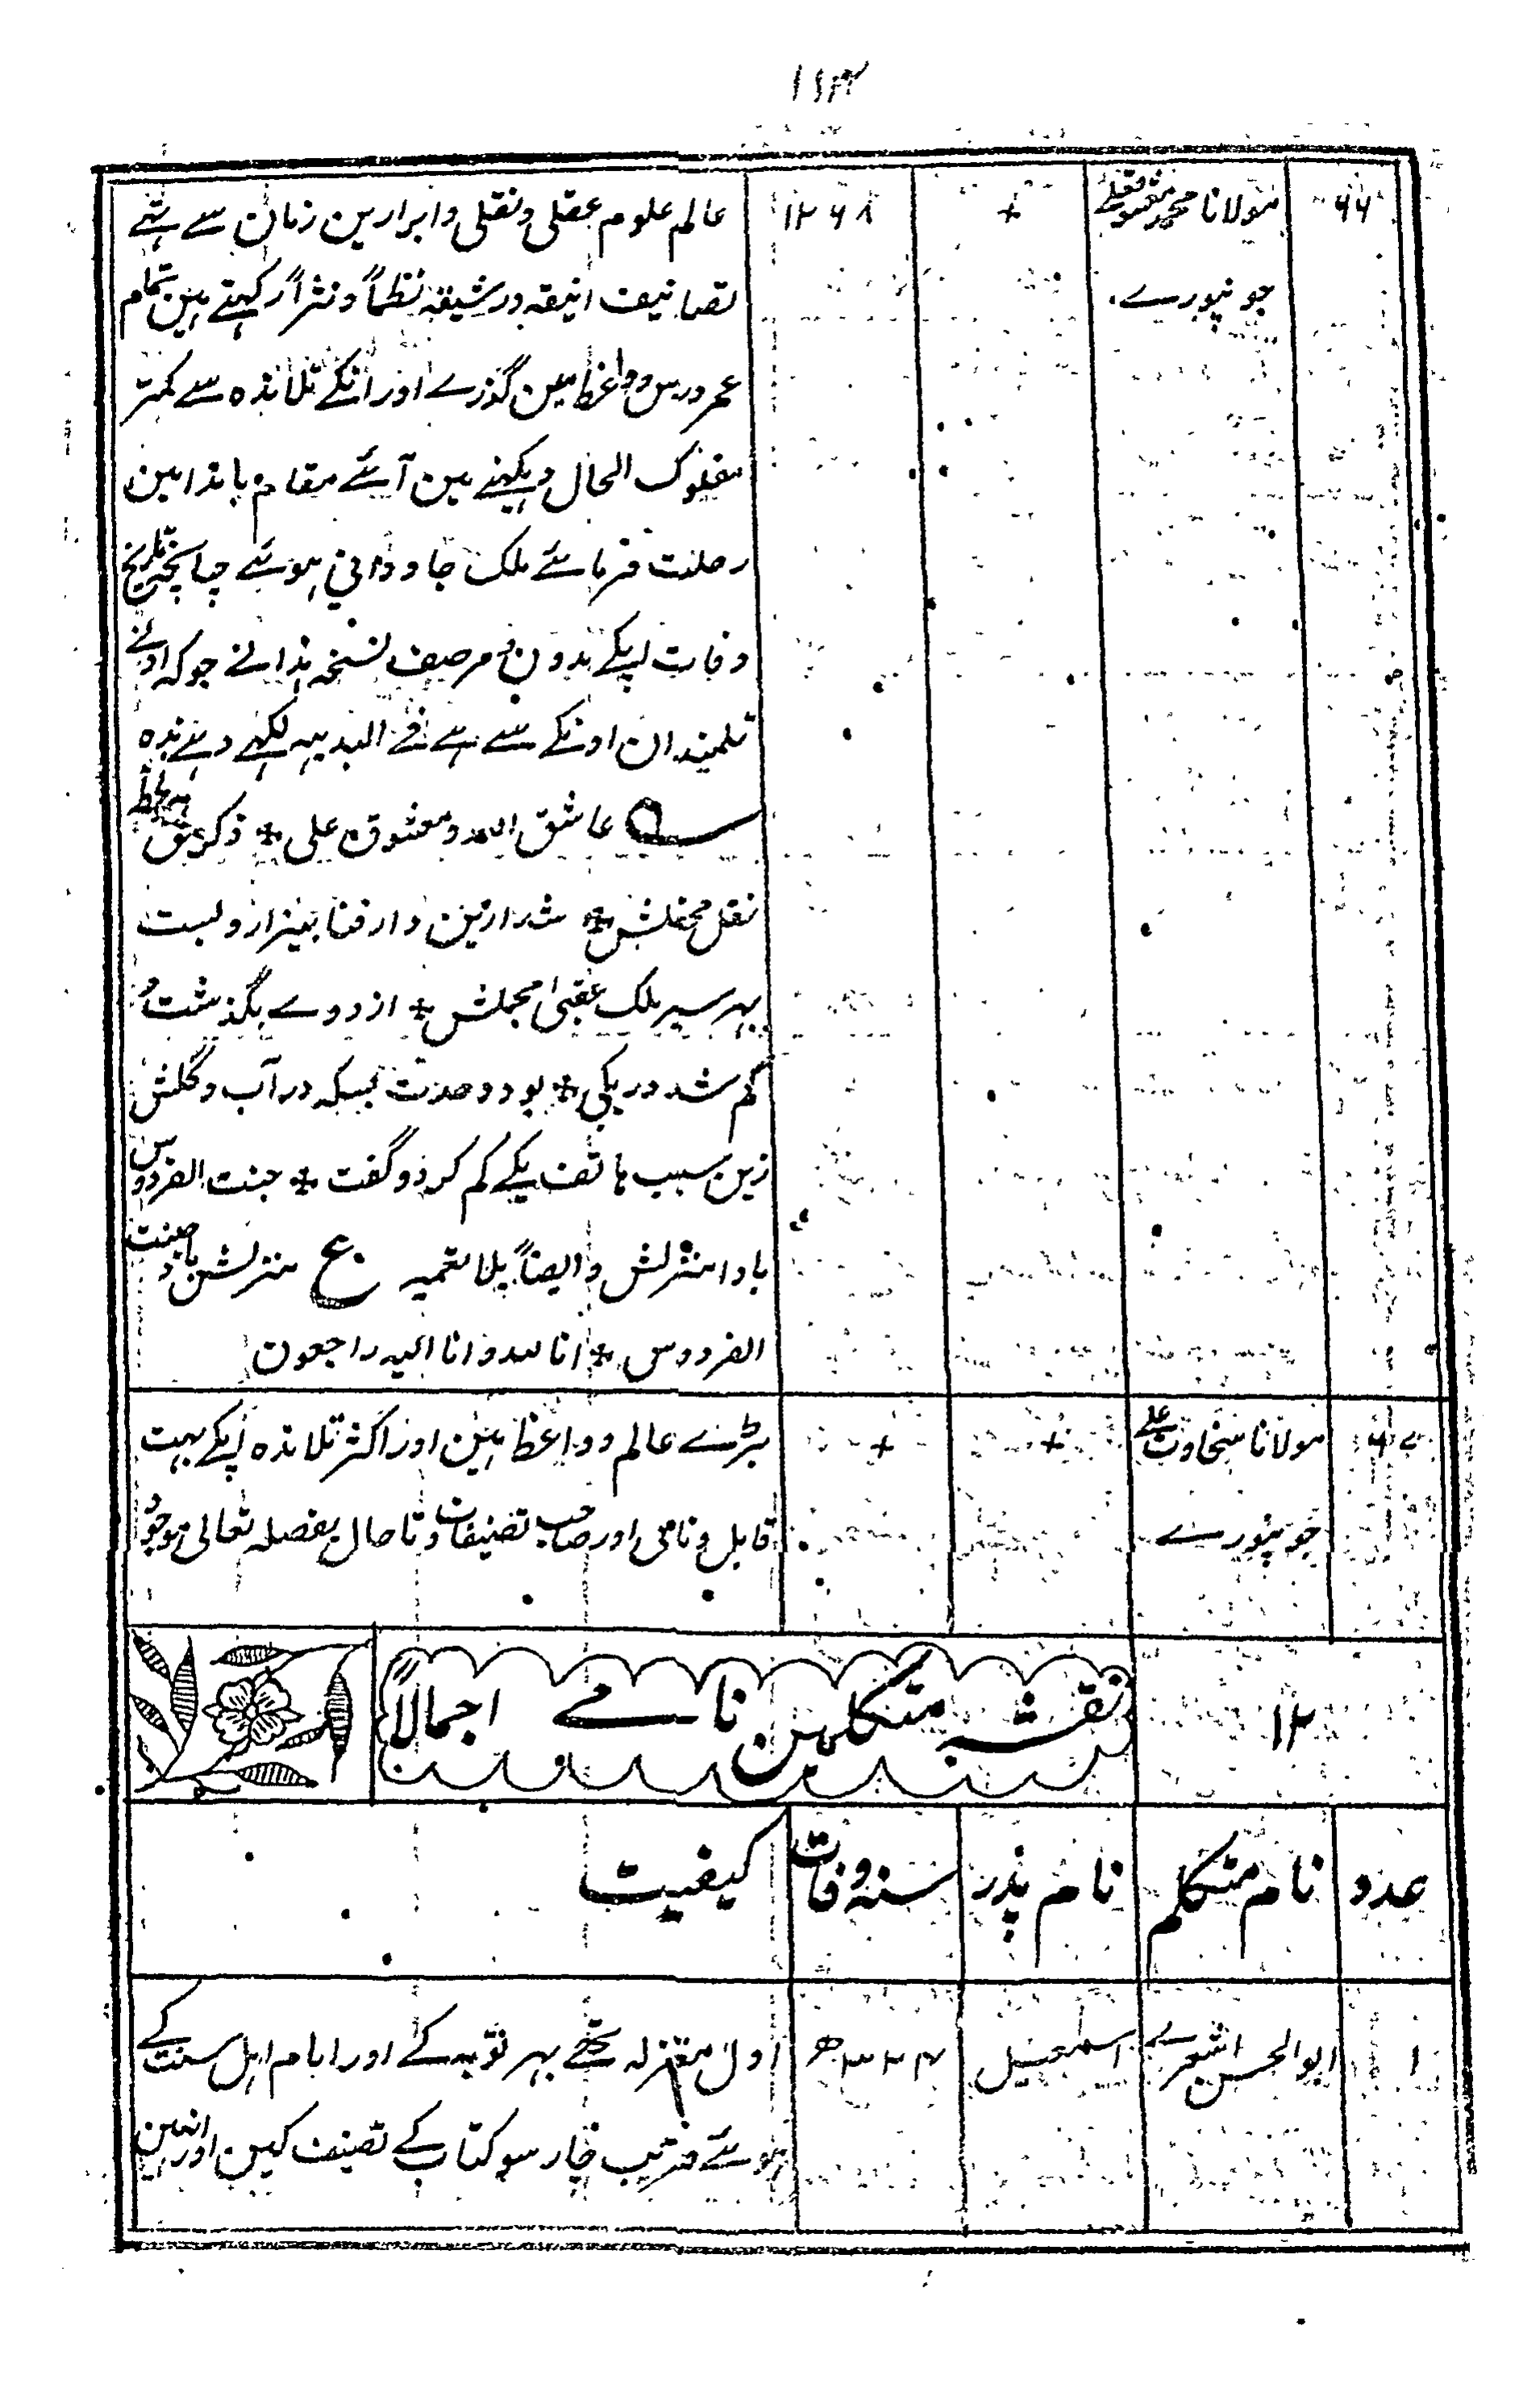 ۶۶ مولانا محمد معشوقعلے + ۱۲۶۸ عالم علوم عقلی ونقلی وابرارین زمان سے تہے
جونپورے۔ تصانیف انیقہ ورشیقہ نظماً ونثراً رکہتے ہین تمام
عمر درس وواعظ مین گذرے اور انکے تلامذہ سے کمتر
مفلوک الحال دیکہنے مین آئے مقام باندا مین
رحلت فرمائے ملک جاودانی ہوئے چنانچہ تاریخ
وفات اپکے بدون مرصیف نسخہ ہذا نے جو کہ ادنے
تلمیذان اونکے سے ہے فے البدیہہ لکہے وہے ہذہ
عاشق اللہ ومعشوق علی + ذکر حق ہر لحظہ
نقل محفلش + شد ازین دار فنا بیزار وبست
بہر سیر ملک عقبیٰ محملش + از دوے بگذشت و
گم شد در یکی + بود وحدت بسکہ در آب وگلش
زین سبب ہاتف یکے کم کرد و گفت + جنت الفردوس
بادا منزلش وایضاً بلا تعمیہ ع منزلش باد جنت
الفردوس + انا للہ وانا الیہ راجعون
۶۷ مولانا سخاوت علے + + بڑے عالم وواعظ ہین اور اکثر تلامذہ اپکے بہت
جونپورے قابل ونامی اور صاحب تصنیفات وتا حال بفضلہ تعالی موجود
۱۲ نقشہ متکلمین نامے اجمالاً
عدد نام متکلم نام پدر سنہ وفات کیفیت
۱ ابو الحسن اشعرے اسمعیل ۳۲۴ھ اول معتزلہ تہے پہر توبہ کے اور امام اہل سنت کے
ہوئے قریب چار سو کتاب کے تصنیف کین اور انہین